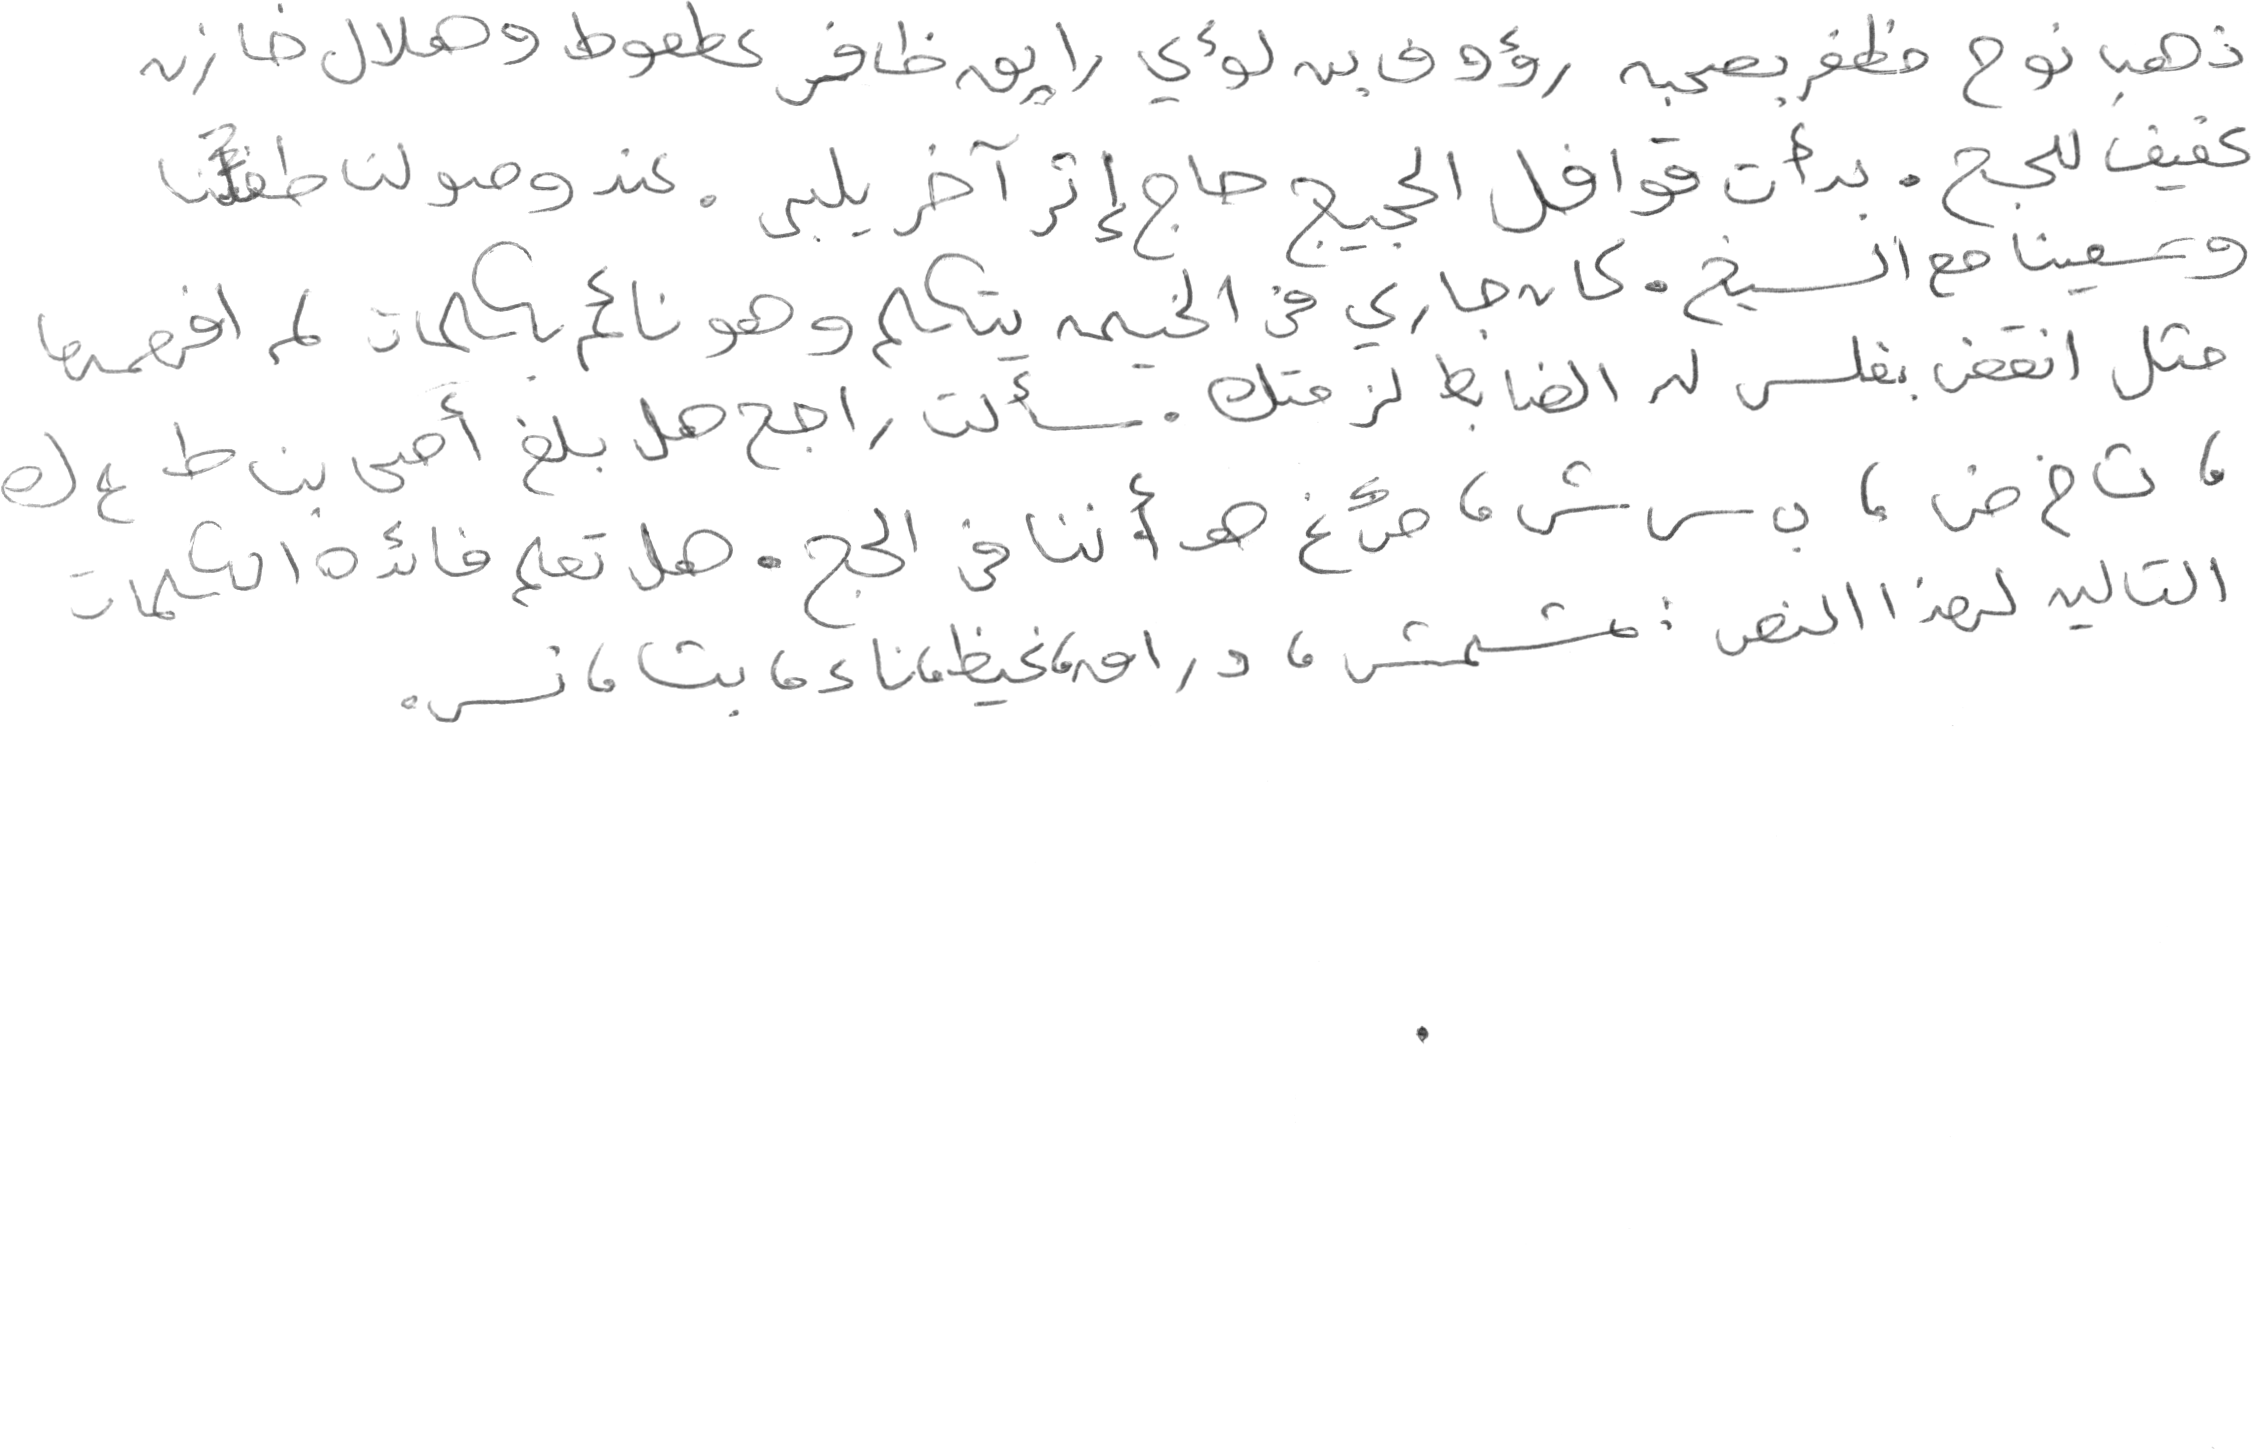 ذهب نوح مظفر بصحبه رؤوف بن لؤي رايق ظافر عطعوط وهلال خازن
عفيف للحج . بدأت قوافل الحجيج حاج إثر آخر يلبي . عند وصولنا طفنا
وسعينا مع الشيخ . كان جاري في الخيمه يتكلم وهو نائم بكلمات لم افهمها
مثل انقض بفلس له الضابط لزمتك . سألت راجح هل بلغ أمي بن ط ء ك
، ت خ ض ، ب س ش ، ص غ هـ أننا في الحج . هل تعلم فائده الكلمات
التاليه لهذا النص : مشمش ، دراق، غيظ، ناء، بت، نس .